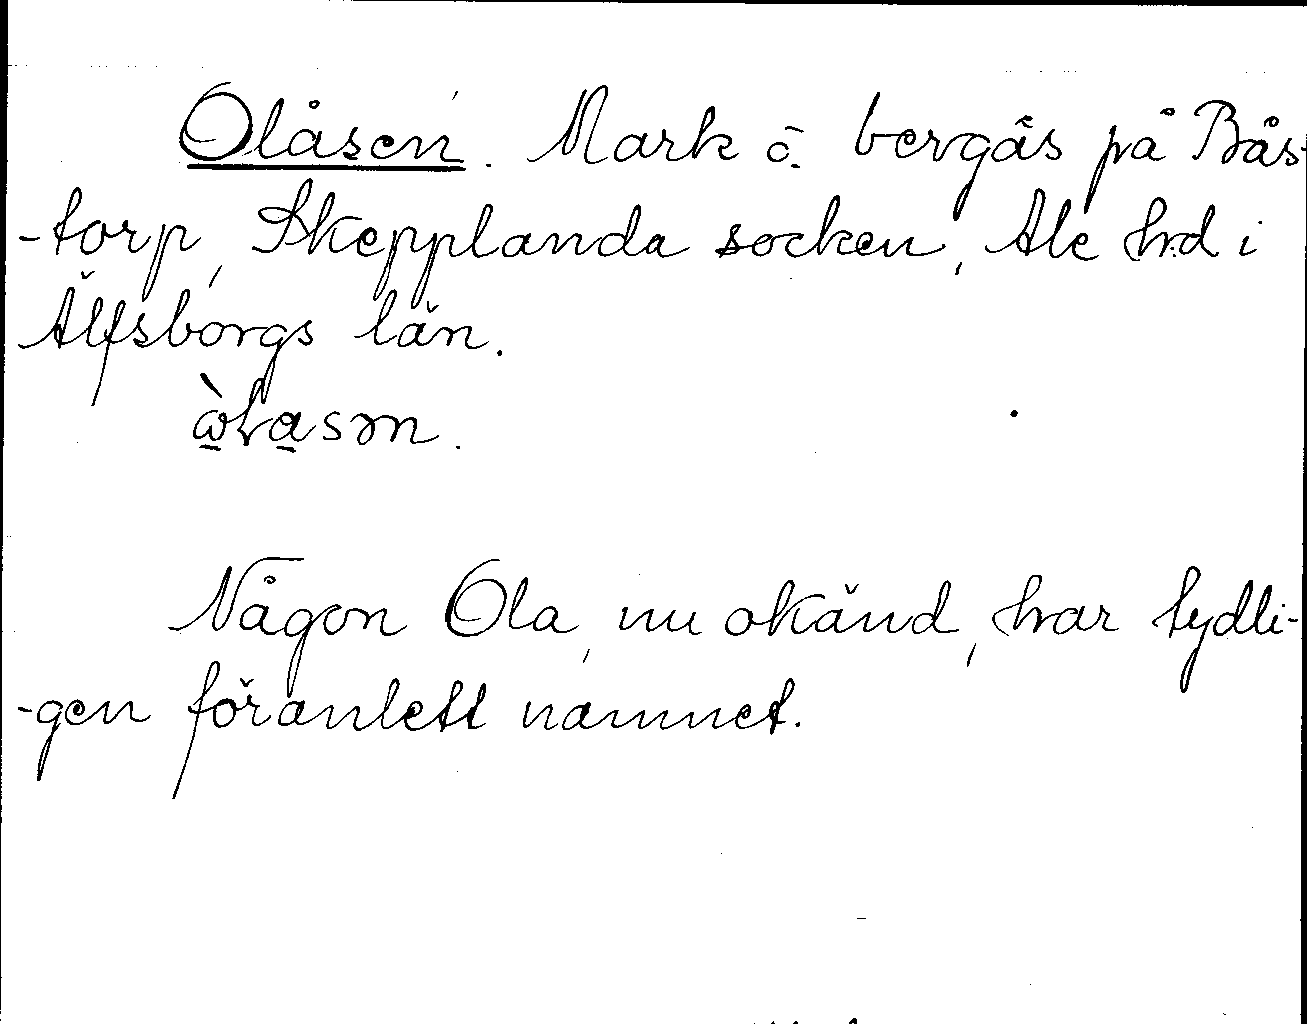 Olåsen. Mark o. bergås på Bås-
-torp, Skepplanda socken, Ale hd i
Älfsborgs län.
Någon Ola, nu okänd, har tydli-
-gen föranlett namnet.